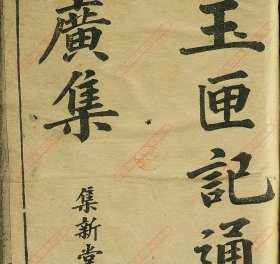 玉匣記通
廣集
集新堂